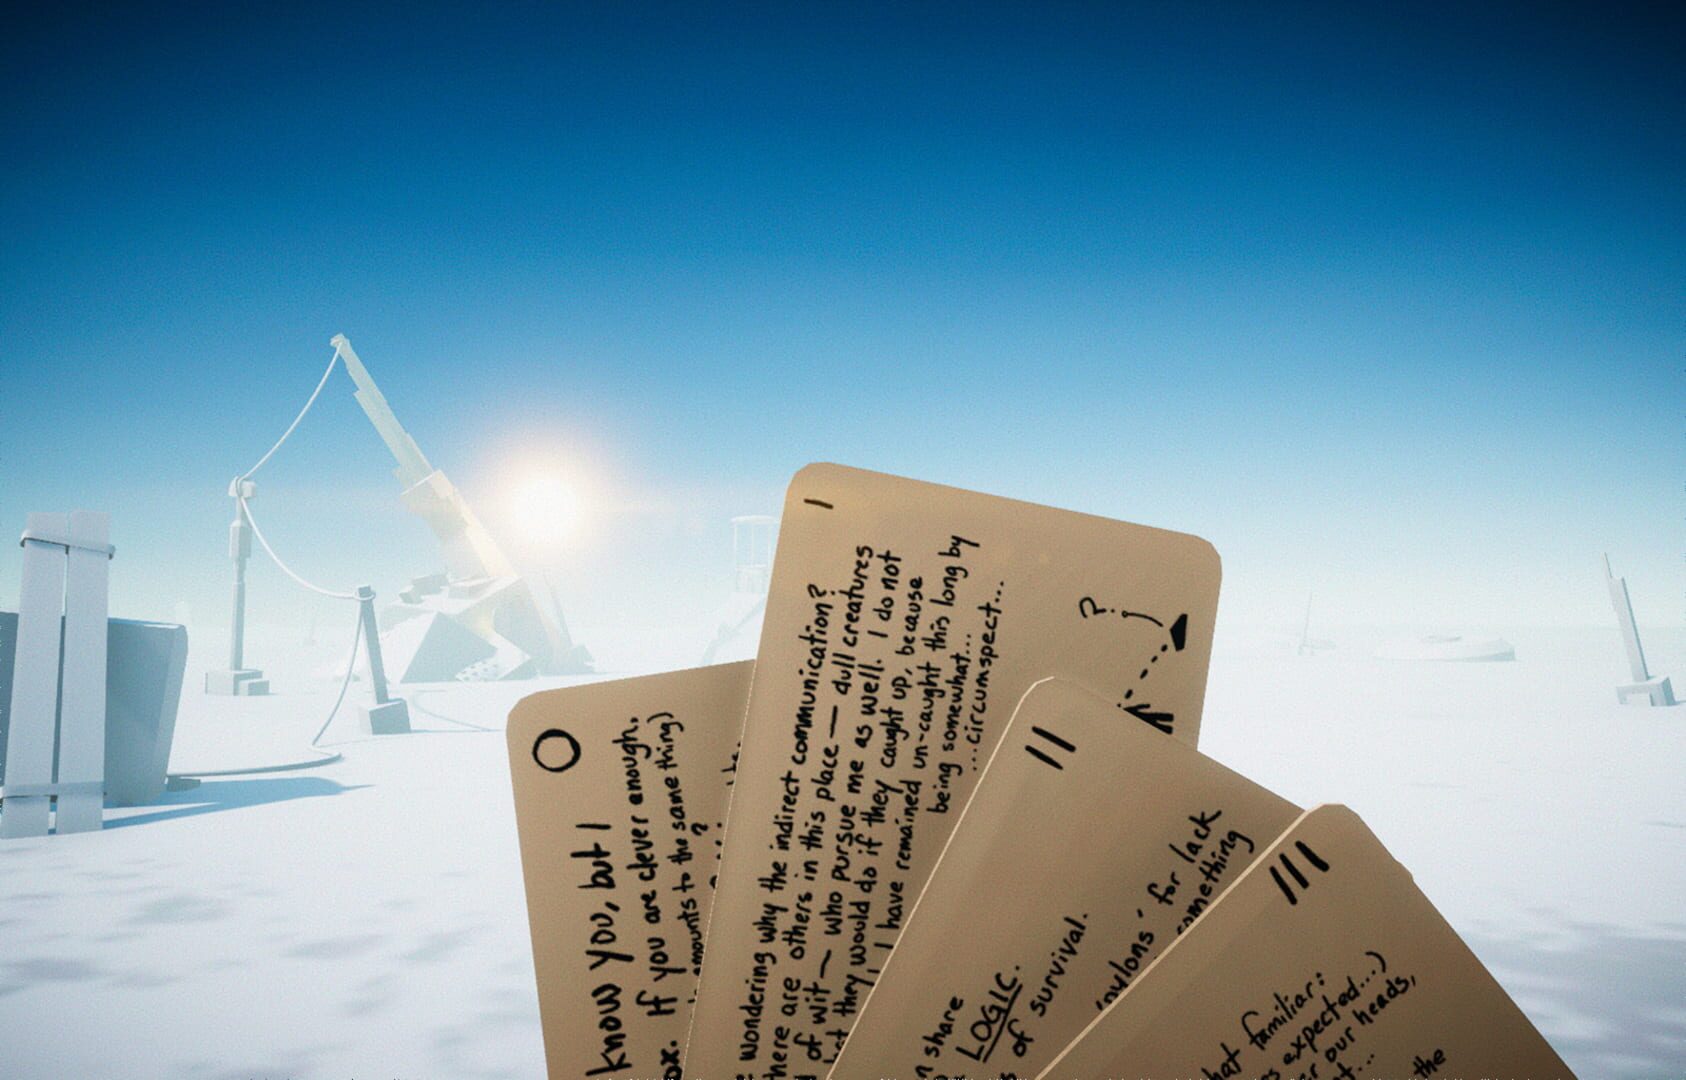 O
know you, but I
If you are clever enough,
amounts to the same thing)
?
I
wondering why the indirect communication?
there are others in this place — dull creatures
of wit — who pursue me as well. I do not
what they would do if they caught up, because
I have remained un-caught this long by
being somewhat...
...circumspect...
?
II
share
LOGIC.
of survival.
'pylons' for lack
something
III
that familiar:
expected...)
our heads,
the